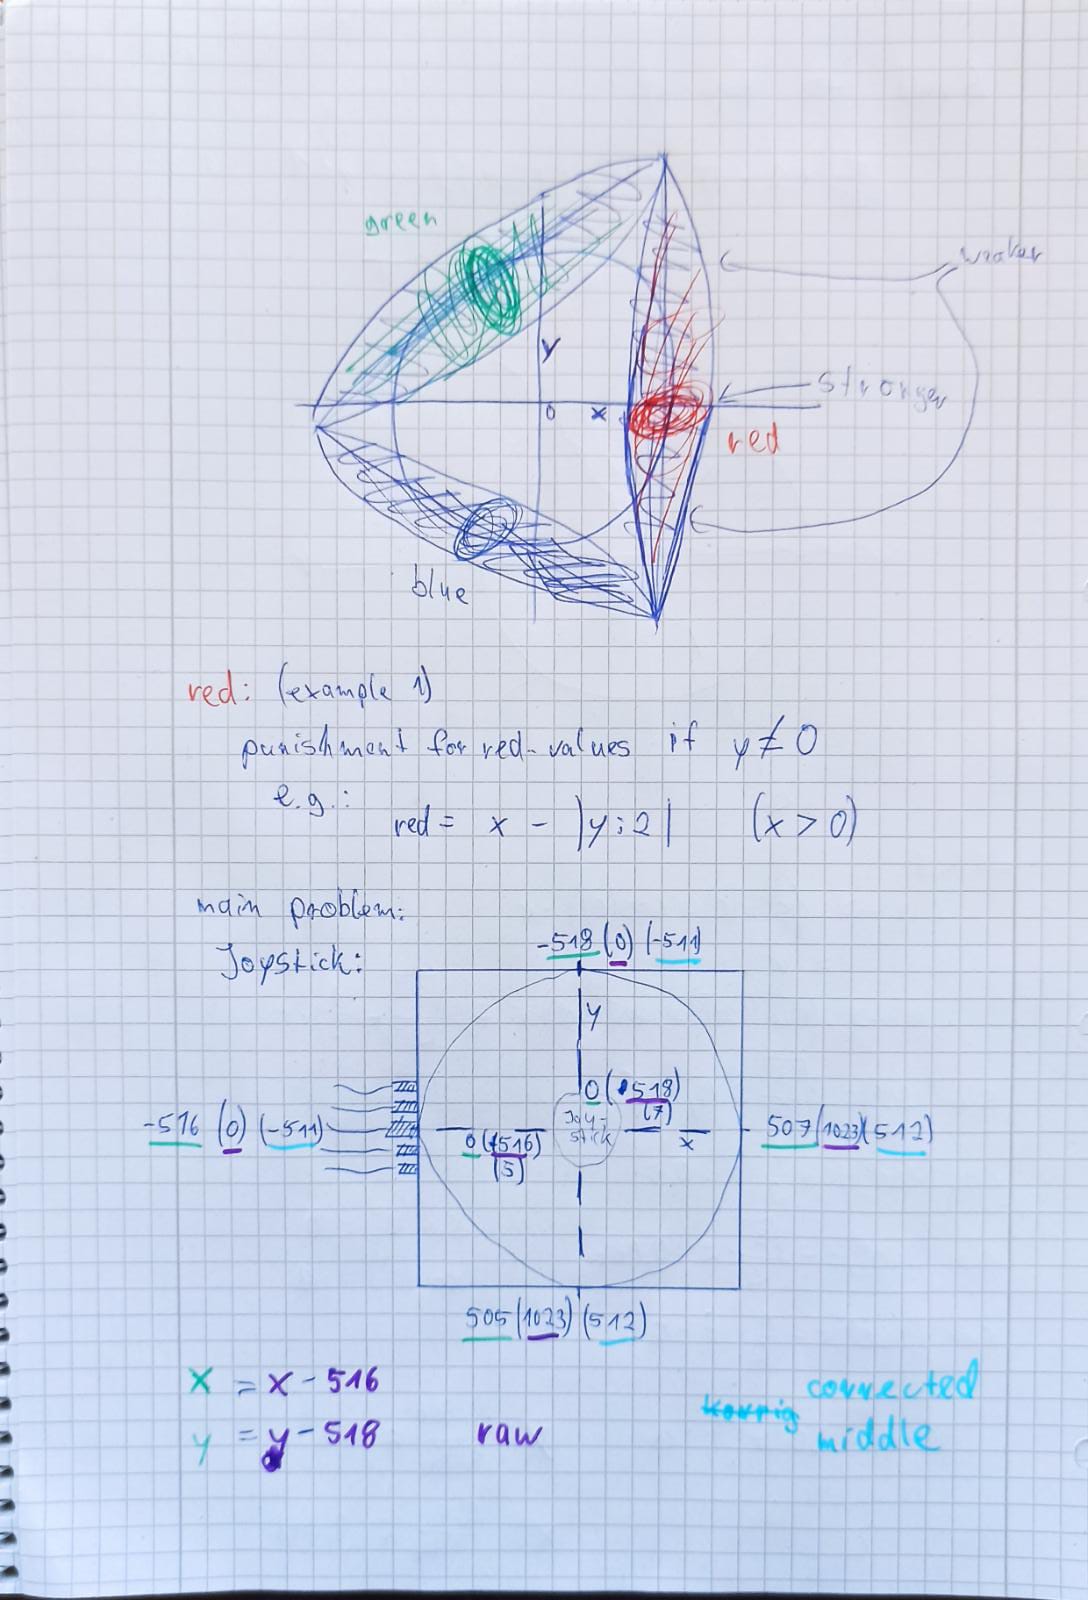 green
weaker
y
stronger
0 x
red
blue
red: (example 1)
punishment for red-values if y ≠ 0
e.g.:
red = x - |y:2| (x > 0)
main problem:
Joystick:
-518 (0) (-511)
y
0 (518)
(7)
-516 (0) (-511)
Joy-
stick
0 (516)
(5)
x
507 (1023) (512)
505 (1023) (512)
x = x - 516
y = y - 518
raw
corrected
middle